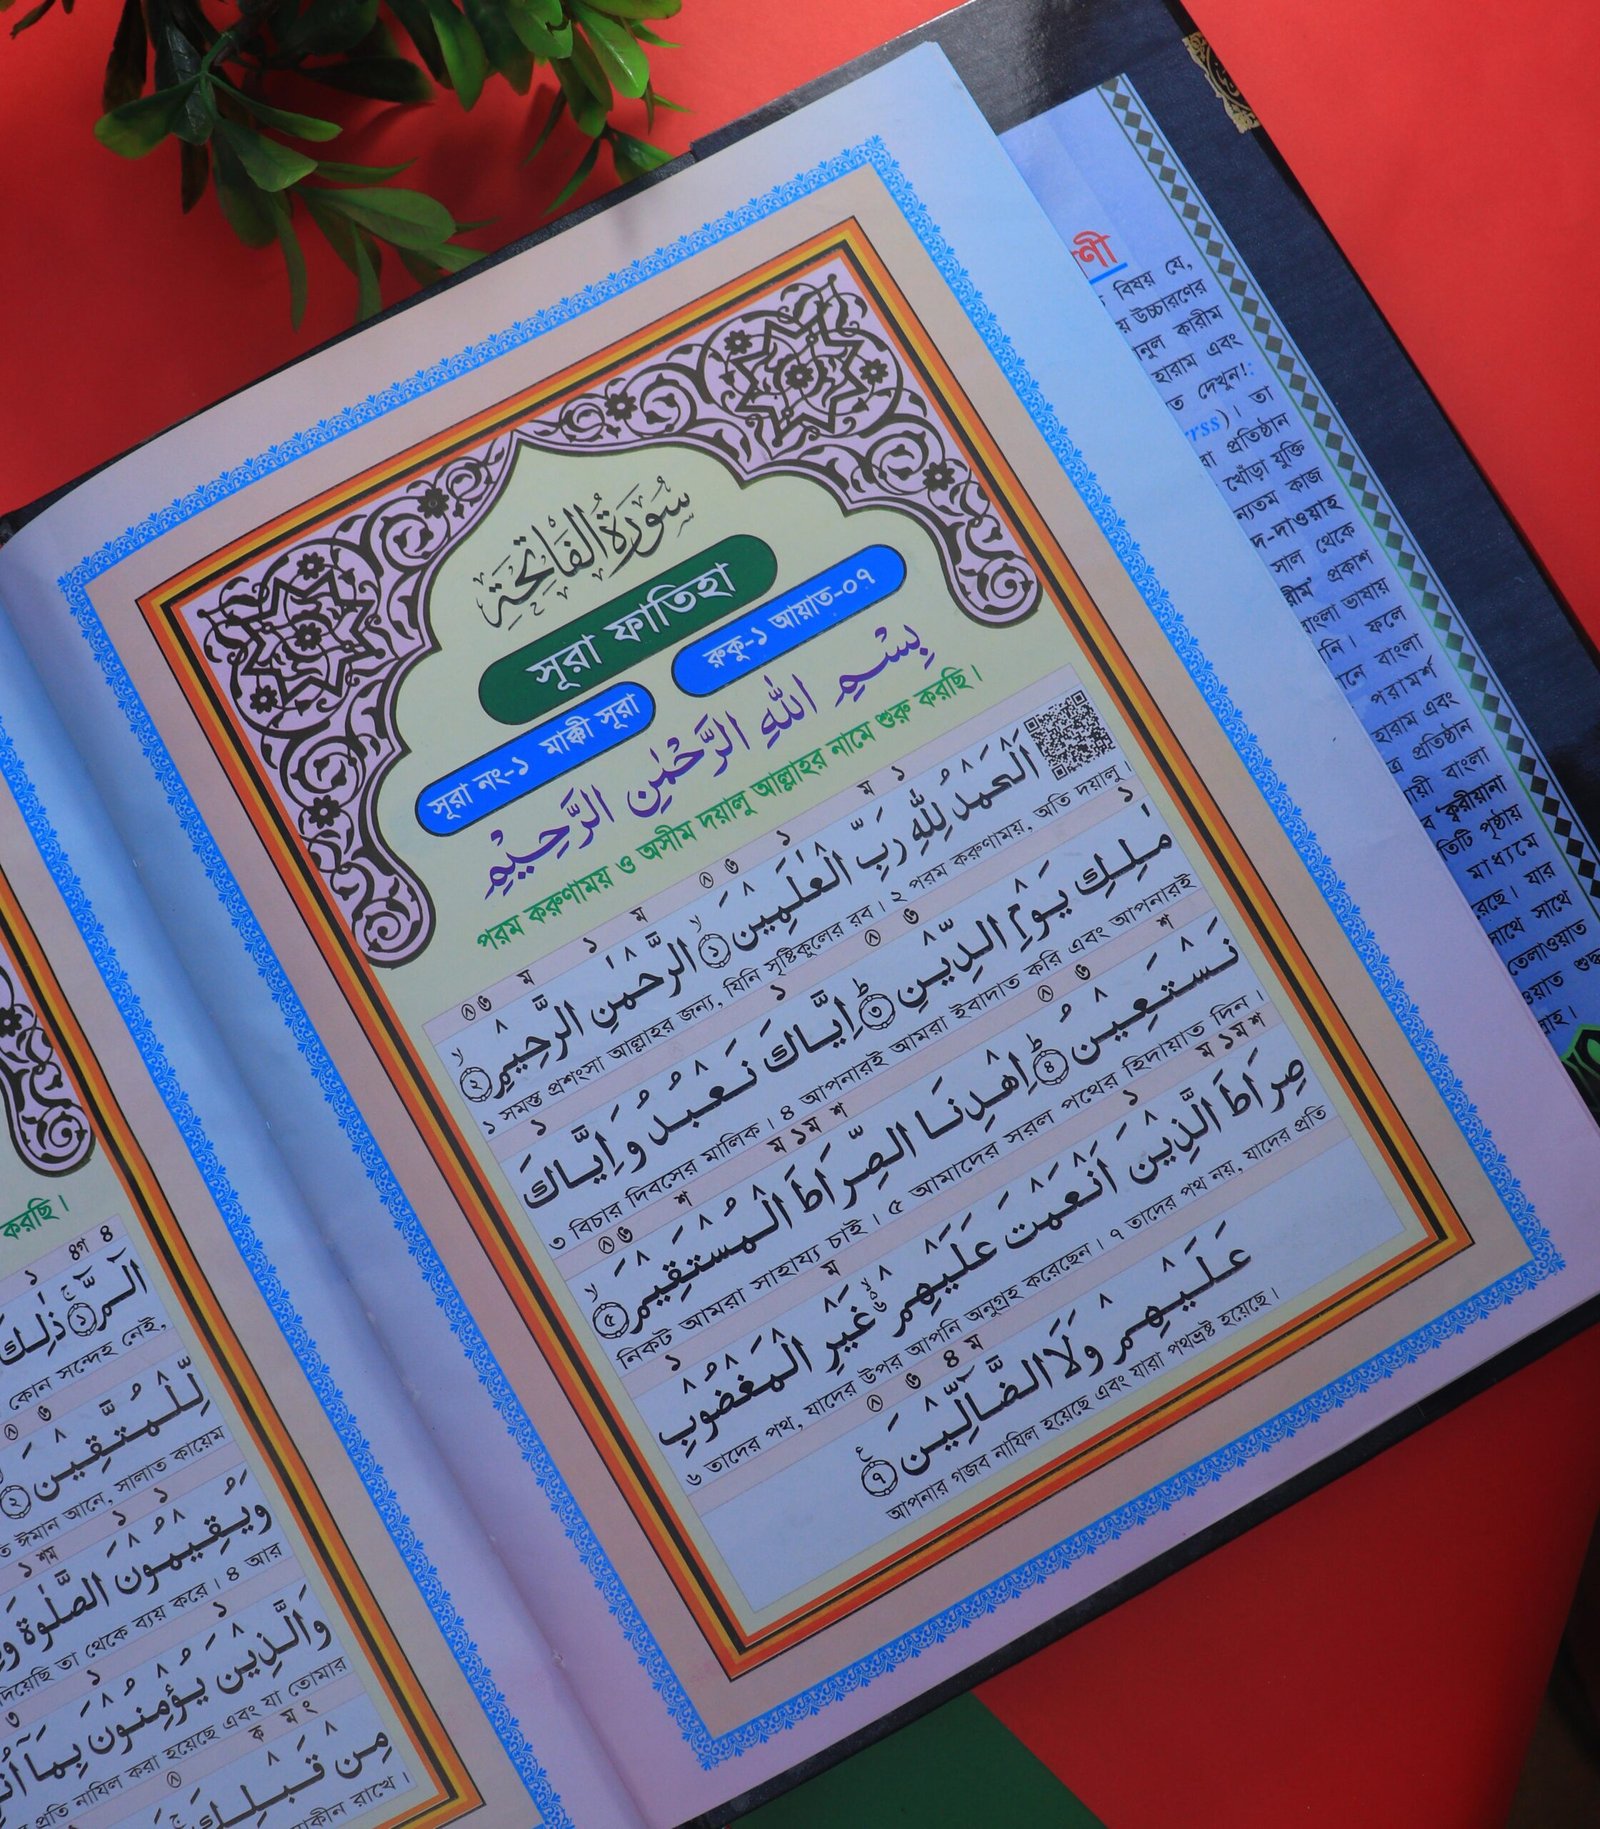 سُورَةُ الْفَاتِحَةِ
সূরা ফাতিহা
সূরা নং-১ মাক্কী সূরা
রুকু-১ আয়াত-০৭
بِسْمِ اللّٰهِ الرَّحْمٰنِ الرَّحِيْمِ
পরম করুণাময় ও অসীম দয়ালু আল্লাহর নামে শুরু করছি।
اَلْحَمْدُ لِلّٰهِ رَبِّ الْعٰلَمِيْنَ ۙ﴿১﴾ الرَّحْمٰنِ الرَّحِيْمِ ۙ﴿২﴾
১ সমস্ত প্রশংসা আল্লাহর জন্য, যিনি সৃষ্টিকুলের রব। ২ পরম করুণাময়, অতি দয়ালু।
مٰلِكِ يَوْمِ الدِّيْنِ ؕ﴿৩﴾ اِيَّاكَ نَعْبُدُ وَاِيَّاكَ
৩ বিচার দিবসের মালিক। ৪ আপনারই আমরা ইবাদাত করি এবং আপনারই
نَسْتَعِيْنُ ؕ﴿৪﴾ اِهْدِنَا الصِّرَاطَ الْمُسْتَقِيْمَ ۙ﴿৫﴾
নিকট আমরা সাহায্য চাই। ৫ আমাদের সরল পথের হিদায়াত দিন।
صِرَاطَ الَّذِيْنَ اَنْعَمْتَ عَلَيْهِمْ ۙ৬ غَيْرِ الْمَغْضُوْبِ
৬ তাদের পথ, যাদের উপর আপনি অনুগ্রহ করেছেন। ৭ তাদের পথ নয়, যাদের প্রতি
عَلَيْهِمْ وَلَا الضَّآلِّيْنَ ﴿৭﴾
আপনার গজব নাযিল হয়েছে এবং যারা পথভ্রষ্ট হয়েছে।
করছি।
الٓمّٓ ۚ﴿১﴾ ذٰلِكَ
কোন সন্দেহ নেই,
لِّلْمُتَّقِيْنَ ﴿২﴾
ঈমান আনে, সালাত কায়েম
وَيُقِيْمُوْنَ الصَّلٰوةَ
দিয়েছি তা থেকে ব্যয় করে। ৪ আর
وَالَّذِيْنَ يُؤْمِنُوْنَ بِمَآ
প্রতি নাযিল করা হয়েছে এবং যা তোমার
مِنْ قَبْلِكَ
রাখে।
বিষয় যে,
য় উচ্চারণের
কারীম
হারাম এবং
ত দেখুন!:
rss)। তা
প্রতিষ্ঠান
খোঁড়া যুক্তি
ন্যতম কাজ
দ-দাওয়াহ
সাল থেকে
প্রকাশ
বাংলা ভাষায়
নি। ফলে
নে বাংলা
পরামর্শ
হারাম এবং
প্রতিষ্ঠান
য়ী বাংলা
ব 'ক্বারীয়ানা
তিটি পৃষ্ঠায়
মাধ্যমে
রছে। যার
সাথে সাথে
তেলাওয়াত
ওয়াত শুদ্ধ